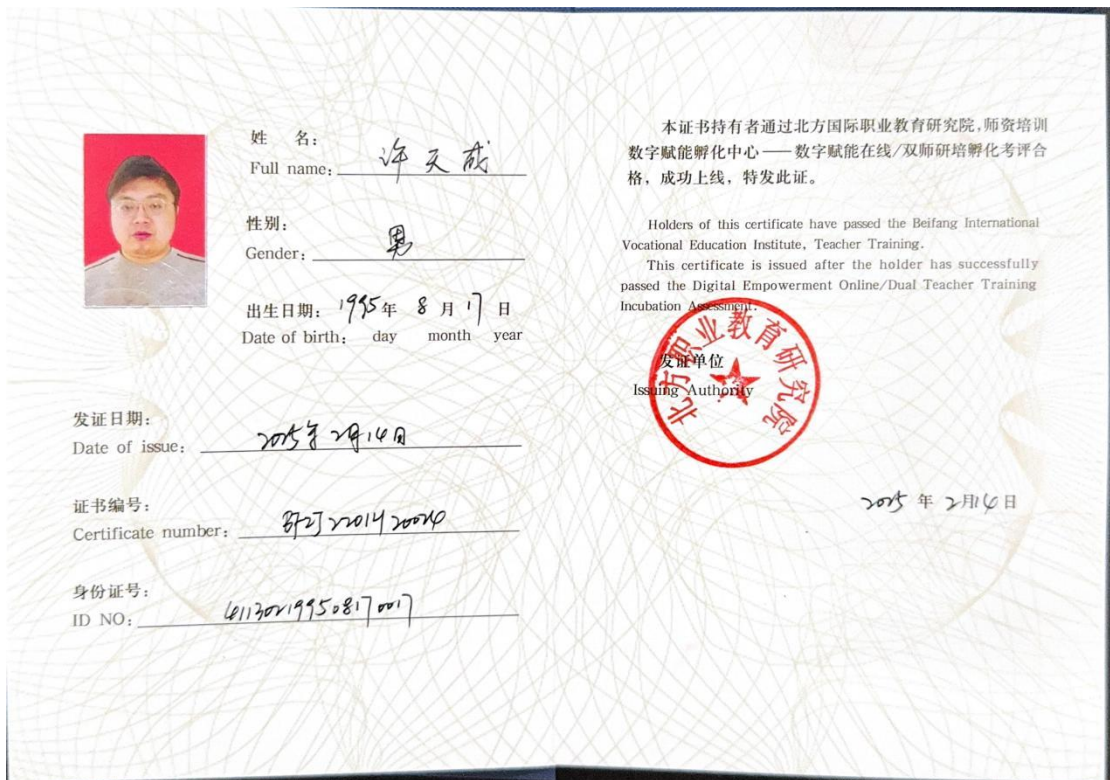 姓 名：
Full name: 许天成
性别：
Gender: 男
出生日期：1995年 8 月 17 日
Date of birth: day month year
发证日期：
Date of issue: 2025年2月14日
证书编号：
Certificate number:
身份证号：
ID NO: 411302199508170017
本证书持有者通过北方国际职业教育研究院，师资培训
数字赋能孵化中心——数字赋能在线/双师研培孵化考评合
格，成功上线，特发此证。
Holders of this certificate have passed the Beifang International
Vocational Education Institute, Teacher Training.
This certificate is issued after the holder has successfully
passed the Digital Empowerment Online/Dual Teacher Training
Incubation Assessment.
北方职业教育研究院
发证单位
Issuing Authority
2025 年 2月14日